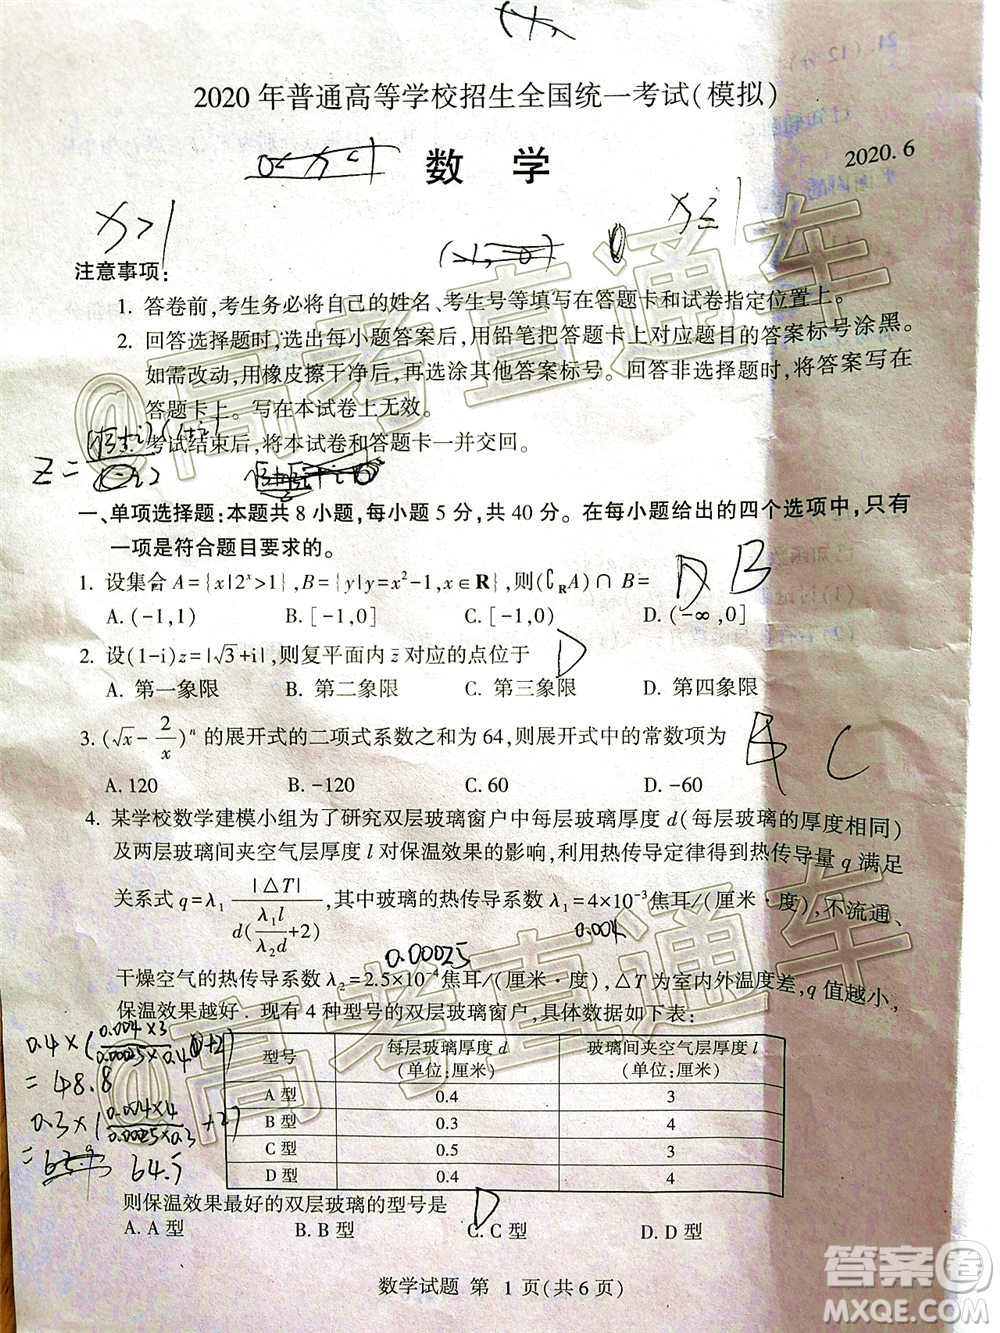 2020年普通高等学校招生全国统一考试(模拟)
数 学
2020.6
x>1
注意事项:
1. 答卷前,考生务必将自己的姓名、考生号等填写在答题卡和试卷指定位置上。
2. 回答选择题时,选出每小题答案后,用铅笔把答题卡上对应题目的答案标号涂黑。
如需改动,用橡皮擦干净后,再选涂其他答案标号。回答非选择题时,将答案写在
答题卡上。写在本试卷上无效。
考试结束后,将本试卷和答题卡一并交回。
一、单项选择题:本题共8小题,每小题5分,共40分。在每小题给出的四个选项中,只有
一项是符合题目要求的。
1. 设集合A={x|2ˣ>1},B={y|y=x²-1,x∈R},则(∁RA)∩B= B
A. (-1,1) B. [-1,0] C. [-1,0) D. (-∞,0]
2. 设(1-i)z=|√3+i|,则复平面内z̄对应的点位于 D
A. 第一象限 B. 第二象限 C. 第三象限 D. 第四象限
3. (√x-2/x)ⁿ的展开式的二项式系数之和为64,则展开式中的常数项为 C
A. 120 B. -120 C. 60 D. -60
4. 某学校数学建模小组为了研究双层玻璃窗户中每层玻璃厚度d(每层玻璃的厚度相同)
及两层玻璃间夹空气层厚度l对保温效果的影响,利用热传导定律得到热传导量q满足
关系式q=λ₁|△T|/(d(λ₁l/(λ₂d)+2)),其中玻璃的热传导系数λ₁=4×10⁻³焦耳/(厘米·度),不流通、
0.004
0.00025
干燥空气的热传导系数λ₂=2.5×10⁻⁴焦耳/(厘米·度),△T为室内外温度差,q值越小,
保温效果越好.现有4种型号的双层玻璃窗户,具体数据如下表:
型号 每层玻璃厚度d(单位:厘米) 玻璃间夹空气层厚度l(单位:厘米)
A型 0.4 3
B型 0.3 4
C型 0.5 3
D型 0.4 4
=48.8
64.5
则保温效果最好的双层玻璃的型号是 D
A. A型 B. B型 C. C型 D. D型
数学试题 第 1 页(共6页)
@高考直通车
@高考直通车
答案圈
MXQE.COM